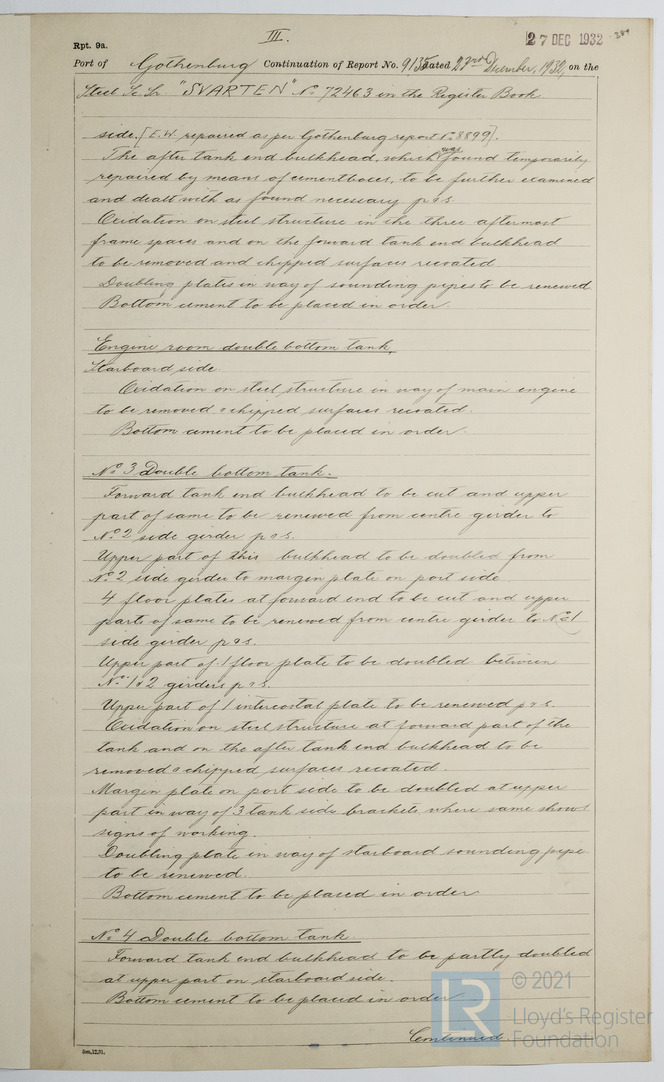 III.
27 DEC 1932
Rpt. 9a.
Port of Gothenburg Continuation of Report No. 9135 dated 22nd December, 1932, on the
Steel Sc Sr "SVARTEN" No 72463 in the Register Book
side. [E.W. repaired as per Gothenburg report No. 8899].
The after tank end bulkhead, which was found temporarily
repaired by means of cementboxes, to be further examined
and dealt with as found necessary p & s.
Oxidation on steel structure in the three aftermost
frame spaces and on the forward tank end bulkhead
to be removed and chipped surfaces recoated.
Doubling plates in way of sounding pipes to be renewed
Bottom cement to be placed in order.
Engine room double bottom tank,
Starboard side.
Oxidation on steel structure in way of main engine
to be removed & chipped surfaces recoated.
Bottom cement to be placed in order.
No 3 Double bottom tank.
Forward tank end bulkhead to be cut and upper
part of same to be renewed from centre girder to
No. 2 side girder p & s.
Upper part of this bulkhead to be doubled from
No. 2 side girder to margin plate on port side
4 floor plates at forward end to be cut and upper
parts of same to be renewed from centre girder to No 1
side girder p & s.
Upper part of 1 floor plate to be doubled between
No. 1 & 2 girders p & s.
Upper part of 1 intercostal plate to be renewed p & s.
Oxidation on steel structure at forward part of the
tank and on the after tank end bulkhead to be
removed & chipped surfaces recoated.
Margin plate on port side to be doubled at upper
part in way of 3 tank side brackets where same show
signs of working.
Doubling plate in way of starboard sounding pipe
to be renewed.
Bottom cement to be placed in order
No 4 Double bottom tank
Forward tank end bulkhead to be partly doubled
at upper part on starboard side.
Bottom cement to be placed in order
Continued.
LR © 2021
Lloyd's Register
Foundation